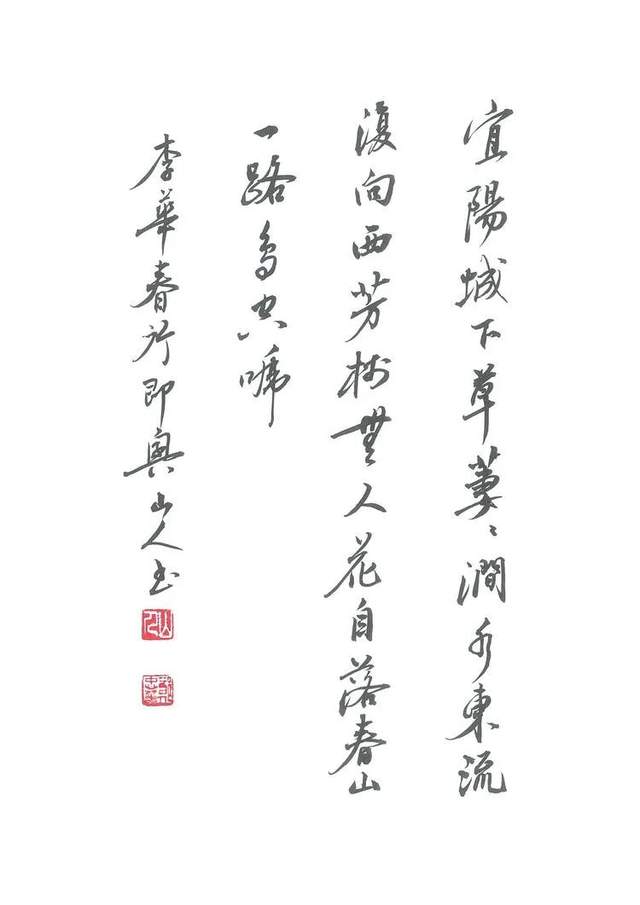 宜陽城下草萋々澗水東流
復向西芳樹無人花自落春山
一路鳥空啼
李華春行即興山人书